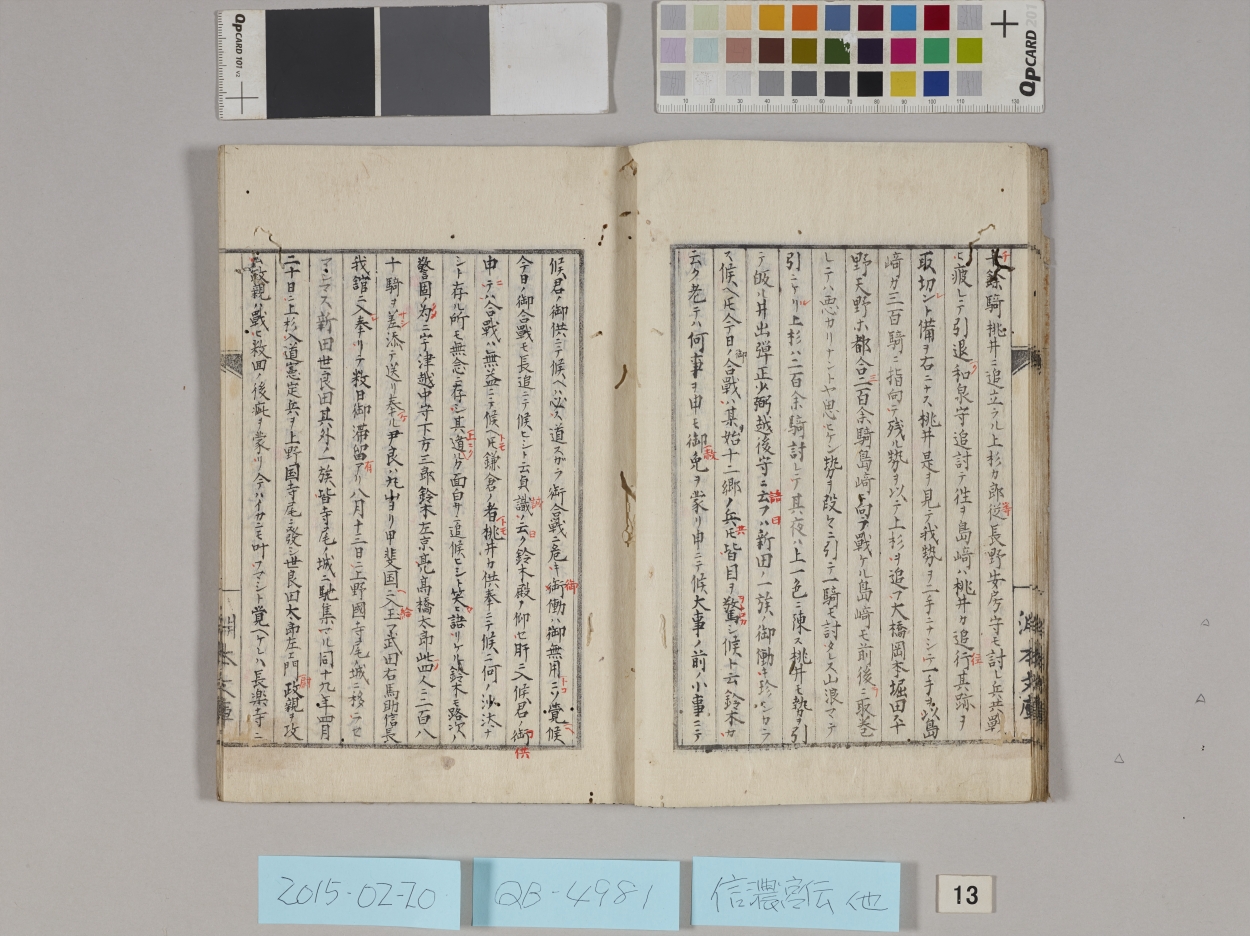 QPCARD 101 v2
QPCARD 201
余騎桃井ニ追立ラル上杉カ郎従長野安房守モ討レ兵共戦
モ疲レテ引退ク和泉守追討テ往ヲ島崎ハ桃井カ追行其跡ヲ
取切ント備ヲ右ニナス桃井是ヲ見テ我勢ヲ二手ニナシテ一手ヲ以島
崎カ三百騎ニ指向テ残ル勢ヲ以テ上杉ヲ追フ大橋岡本堀田平
野天野ホ都合二百余騎島崎ト向フ戦ケル島崎モ前後ニ取巻
レテハ悪カリナントヤ思ヒケン勢ヲ段々ニ引テ一騎モ討タレス山浪マテ
引ニケリ上杉ハ二百余騎討レテ其夜ハ上一色ニ陳ス桃井モ勢ヲ引
テ皈ル井出弾正少弼越後守ニ云フハ新田ノ一族ノ御働キ珍シカラ
ス候ヘ𪜈今日ノ合戦ハ某始十二郷ノ兵𪜈皆目ヲ驚シ候ト云鈴木カ
云ク老テハ何事ヲ申モ御免ヲ蒙リ申ニテ候大事ノ前ノ小事ニテ
候君ノ御供ニテ候ヘハ必ス道スガラ御合戦ニ危キ御働ハ御無用ニソ覚候
今日ノ御合戦モ長追ニテ候ヒシト云貞識ソ云ク鈴木殿ノ仰セ肝ニ入候君ノ御
申テハ合戦ハ無益ニテ候ヘ𪜈鎌倉ノ者桃井カ供奉ニテ候ニ何ノ沙汰ナ
シト存ル所モ無念ニ存シ其道ルカ面白サニ追候ヒシト笑テ語リケル鈴木モ路次
警固ノ為ニ宇津越中守下方三郎鈴木左京亮高橋太郎此四人ニ三百八
十騎ヲ差添テ送リ奉ル尹良ハ九山ヨリ甲斐国ニ入玉フ武田右馬助信長
我舘ニ入奉リテ数日御滞留アリ八月十三日ニ上野國寺尾ノ城ニ移ラセ
マシマス新田世良田其外ノ一族皆寺尾ノ城ニ馳集マル同十九年四月
二十日ニ上杉入道憲定兵ヲ上野国寺尾ニ發シ世良田太郎左ヱ門政親ヲ攻
政親ハ戦ヒ数回ノ後疵ヲ蒙リ今ハイカニモ叶フマシト覚ヘケレハ長楽寺ニ
2015-02-20
QB-4981
信濃宮伝 他
13